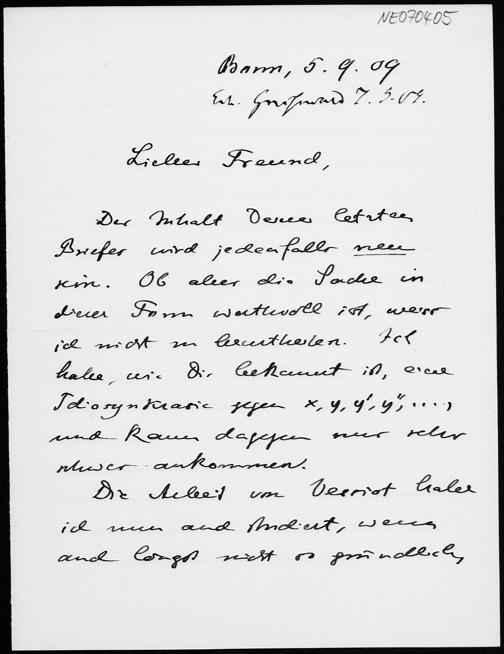 NE070405
Bonn, 5.9.09
Erh. Greifswald 7.9.09.
Lieber Freund,
Der Inhalt Deines letzten
Briefes wird jedenfalls neu
sein. Ob aber die Sache in
dieser Form werthvoll ist, weiss
ich nicht zu beurtheilen. Ich
habe, wie Dir bekannt ist, eine
Idiosynkrasie gegen x, y, y', y'', ...,
und kann dagegen nur sehr
schwer ankommen.
Die Arbeit von Vessiot habe
ich nun auch studiert, wenn
auch längst nicht so gründlich,